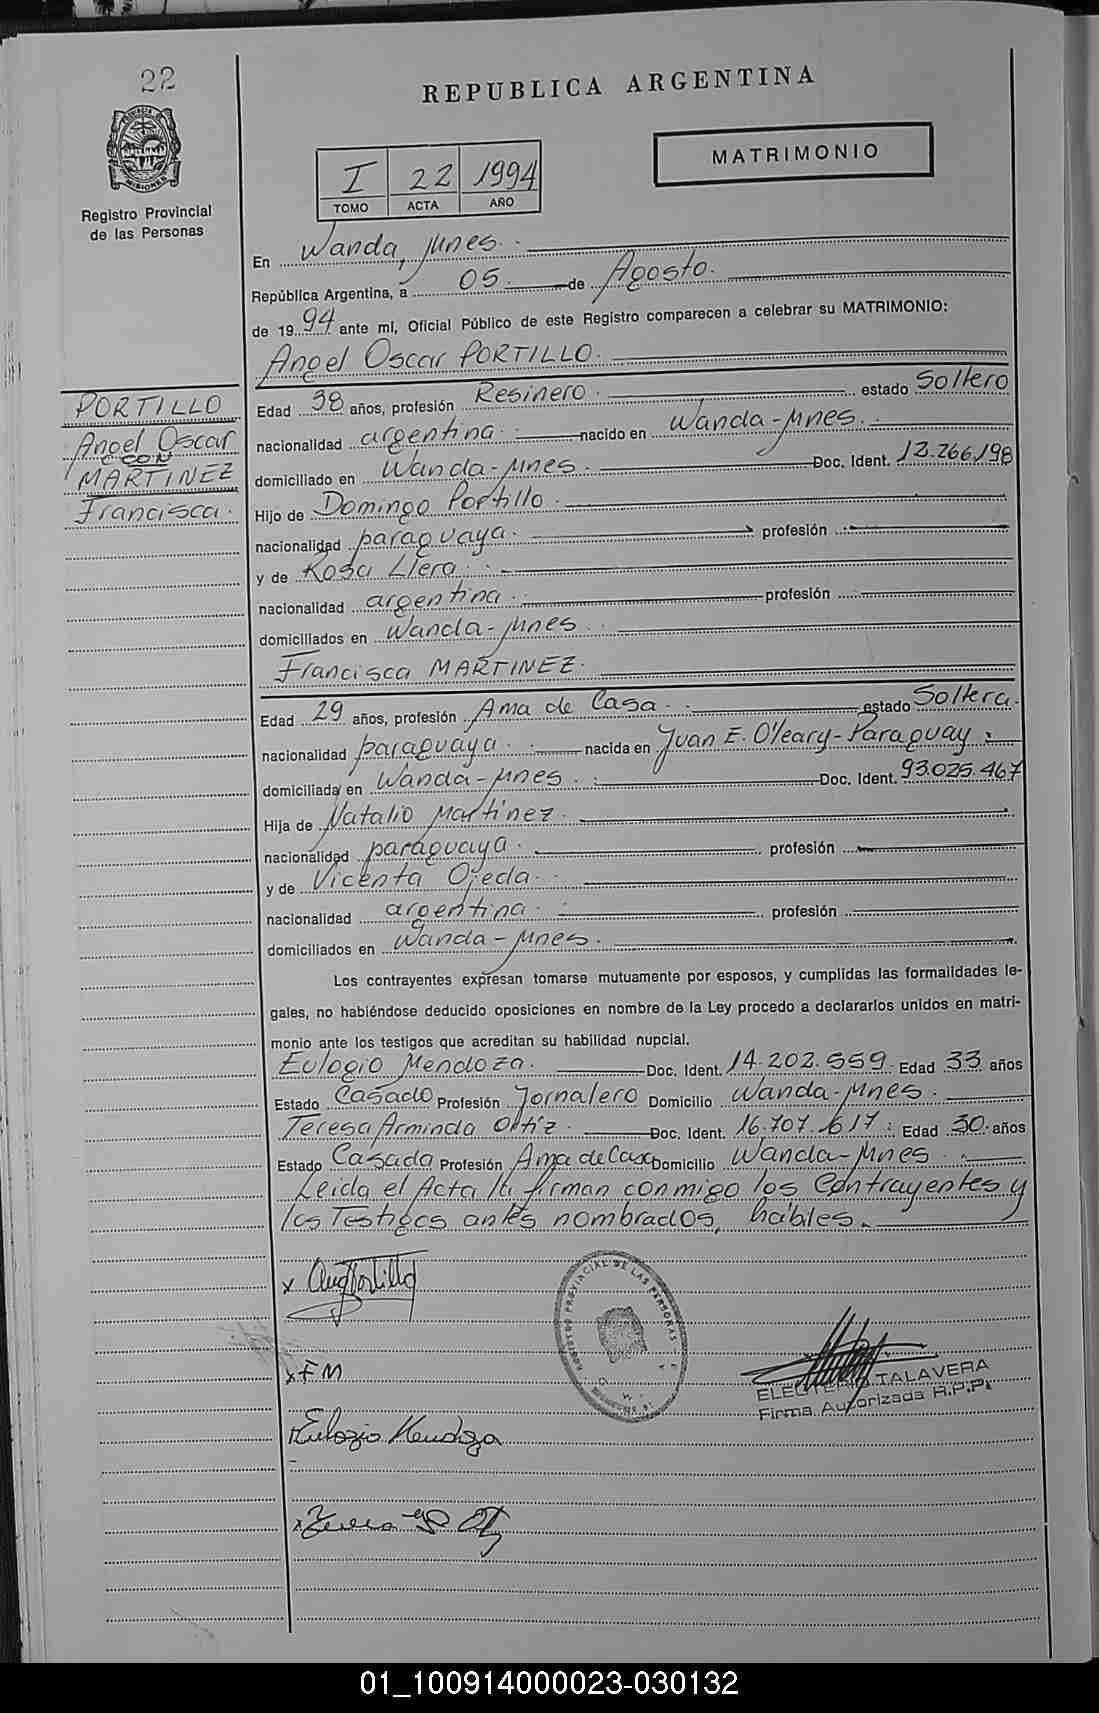 22
REPUBLICA ARGENTINA
MATRIMONIO
I 22 1994
TOMO ACTA AÑO
Registro Provincial
de las Personas
En Wanda, Mnes.
República Argentina, a 05 de Agosto.
de 1994 ante mi, Oficial Público de este Registro comparecen a celebrar su MATRIMONIO:
Angel Oscar PORTILLO.
PORTILLO
Angel Oscar
CON
MARTINEZ
Francisca.
Edad 38 años, profesión Resinero. estado Soltero
nacionalidad argentina. nacido en Wanda-Mnes.
domiciliado en Wanda-Mnes. Doc. Ident. 12.266.198
Hijo de Domingo Portillo.
nacionalidad paraguaya. profesión
y de Rosa Llera.
nacionalidad argentina. profesión
domiciliados en Wanda-Mnes.
Francisca MARTINEZ.
Edad 29 años, profesión Ama de Casa. estado Soltera.
nacionalidad paraguaya. nacida en Juan E. O'leary-Paraguay.
domiciliada en Wanda-Mnes. Doc. Ident. 93.025.467
Hija de Natalio Martinez.
nacionalidad paraguaya. profesión
y de Vicenta Ojeda.
nacionalidad argentina. profesión
domiciliados en Wanda-Mnes.
Los contrayentes expresan tomarse mutuamente por esposos, y cumplidas las formalidades le-
gales, no habiéndose deducido oposiciones en nombre de la Ley procedo a declararlos unidos en matri-
monio ante los testigos que acreditan su habilidad nupcial.
Eulogio Mendoza. Doc. Ident. 14.202.559. Edad 33 años
Estado Casado Profesión Jornalero Domicilio Wanda-Mnes.
Teresa Arminda Ortiz. Doc. Ident. 16.707.617. Edad 30. años
Estado Casada Profesión Ama de Casa Domicilio Wanda-Mnes.
Leida el Acta la firman conmigo los Contrayentes y
los Testigos antes nombrados, hábiles.
x Ang Portillo
REGISTRO PROVINCIAL DE LAS PERSONAS
x F M
ELEUTERIO TALAVERA
Firma Autorizada R.P.P.
x Eulogio Mendoza
01_100914000023-030132